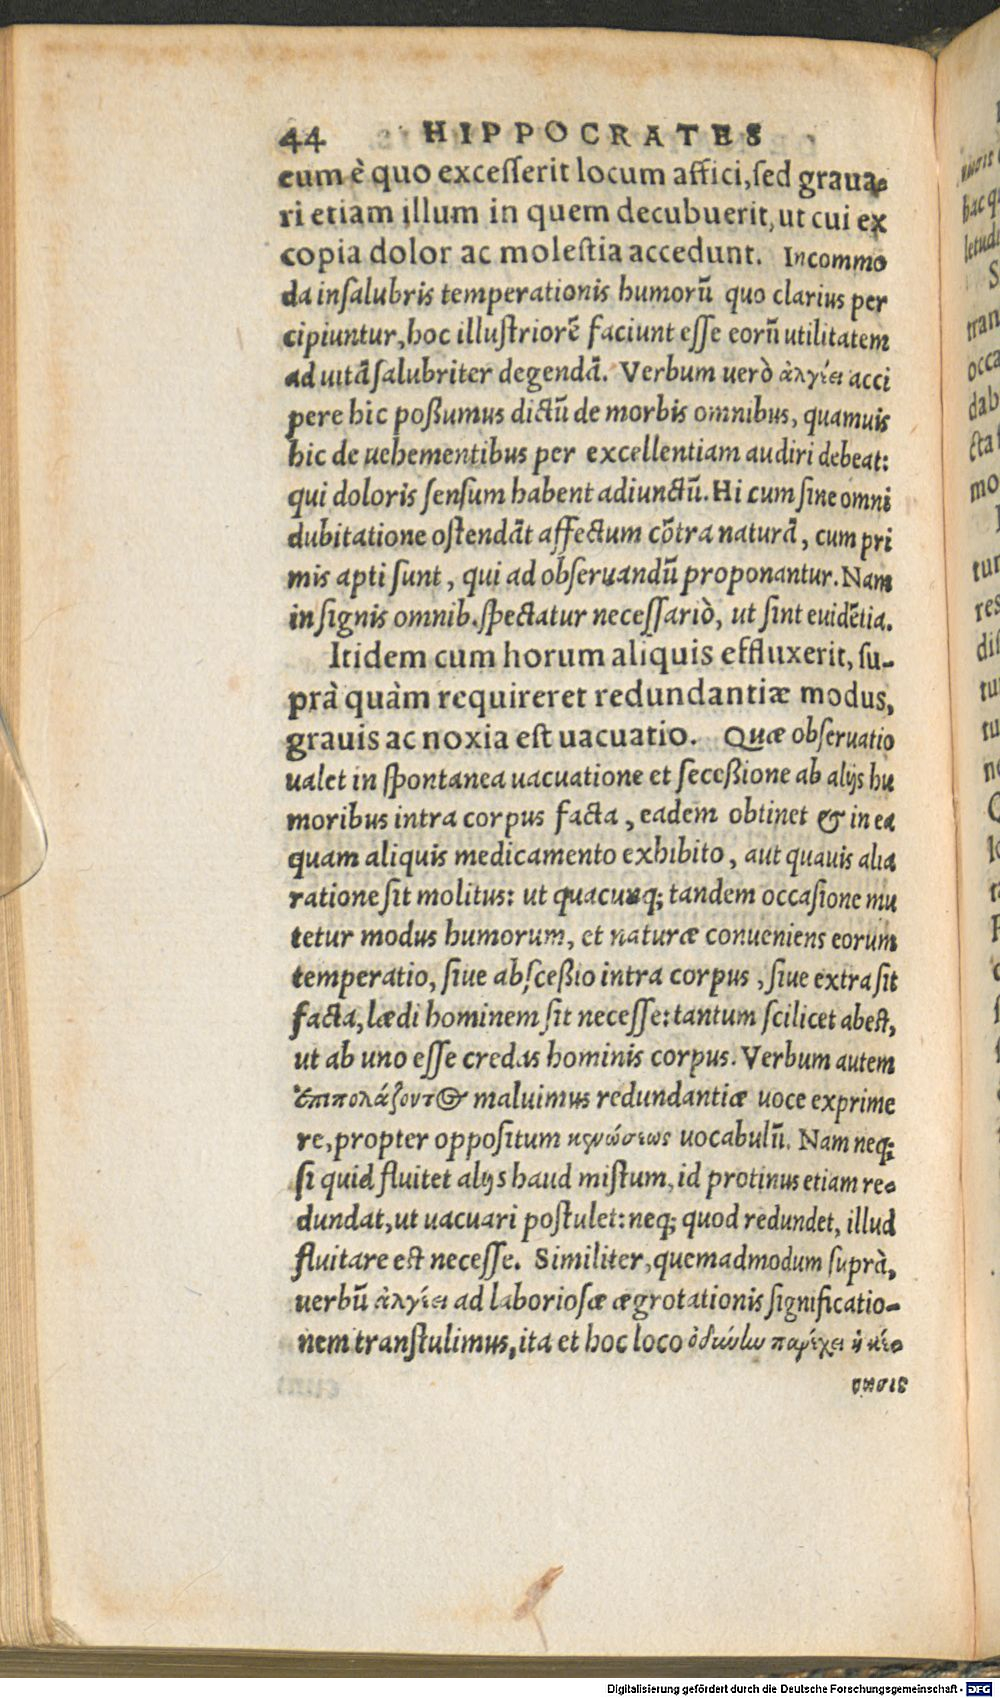 44 HIPPOCRATES
eum è quo excesserit locum affici, sed graua-
ri etiam illum in quem decubuerit, ut cui ex
copia dolor ac molestia accedunt. Incommo
da insalubris temperationis humorũ quo clarius per
cipiuntur, hoc illustriorẽ faciunt esse eorũ utilitatem
ad uitã salubriter degendã. Verbum uerò ἀλγέει acci
pere hic poßumus dictũ de morbis omnibus, quamuis
hic de uehementibus per excellentiam audiri debeat:
qui doloris sensum habent adiunctũ. Hi cum sine omni
dubitatione ostendãt affectum cõtra naturã, cum pri
mis apti sunt, qui ad obseruandũ proponantur. Nam
in signis omnib. spectatur necessariò, ut sint euidẽtia.
Itidem cum horum aliquis effluxerit, su-
prà quàm requireret redundantiæ modus,
grauis ac noxia est uacuatio. Quæ obseruatio
ualet in spontanea uacuatione et seceßione ab alijs hu
moribus intra corpus facta, eadem obtinet & in ea
quam aliquis medicamento exhibito, aut quauis alia
ratione sit molitus: ut quacunq; tandem occasione mu
tetur modus humorum, et naturæ conueniens eorum
temperatio, siue absceßio intra corpus, siue extra sit
facta, lædi hominem sit necesse: tantum scilicet abest,
ut ab uno esse credas hominis corpus. Verbum autem
ἐπιπολάζοντος maluimus redundantiæ uoce exprime
re, propter oppositum κενώσεως uocabulũ. Nam neq;
si quid fluitet alijs haud mistum, id protinus etiam re-
dundat, ut uacuari postulet: neq; quod redundet, illud
fluitare est necesse. Similiter, quemadmodum suprà,
uerbũ ἀλγέει ad laboriosæ ægrotationis significatio-
nem transtulimus, ita et hoc loco ὀδύνην παρέχει ἡ κέν
ωσις
Digitalisierung gefördert durch die Deutsche Forschungsgemeinschaft - DFG